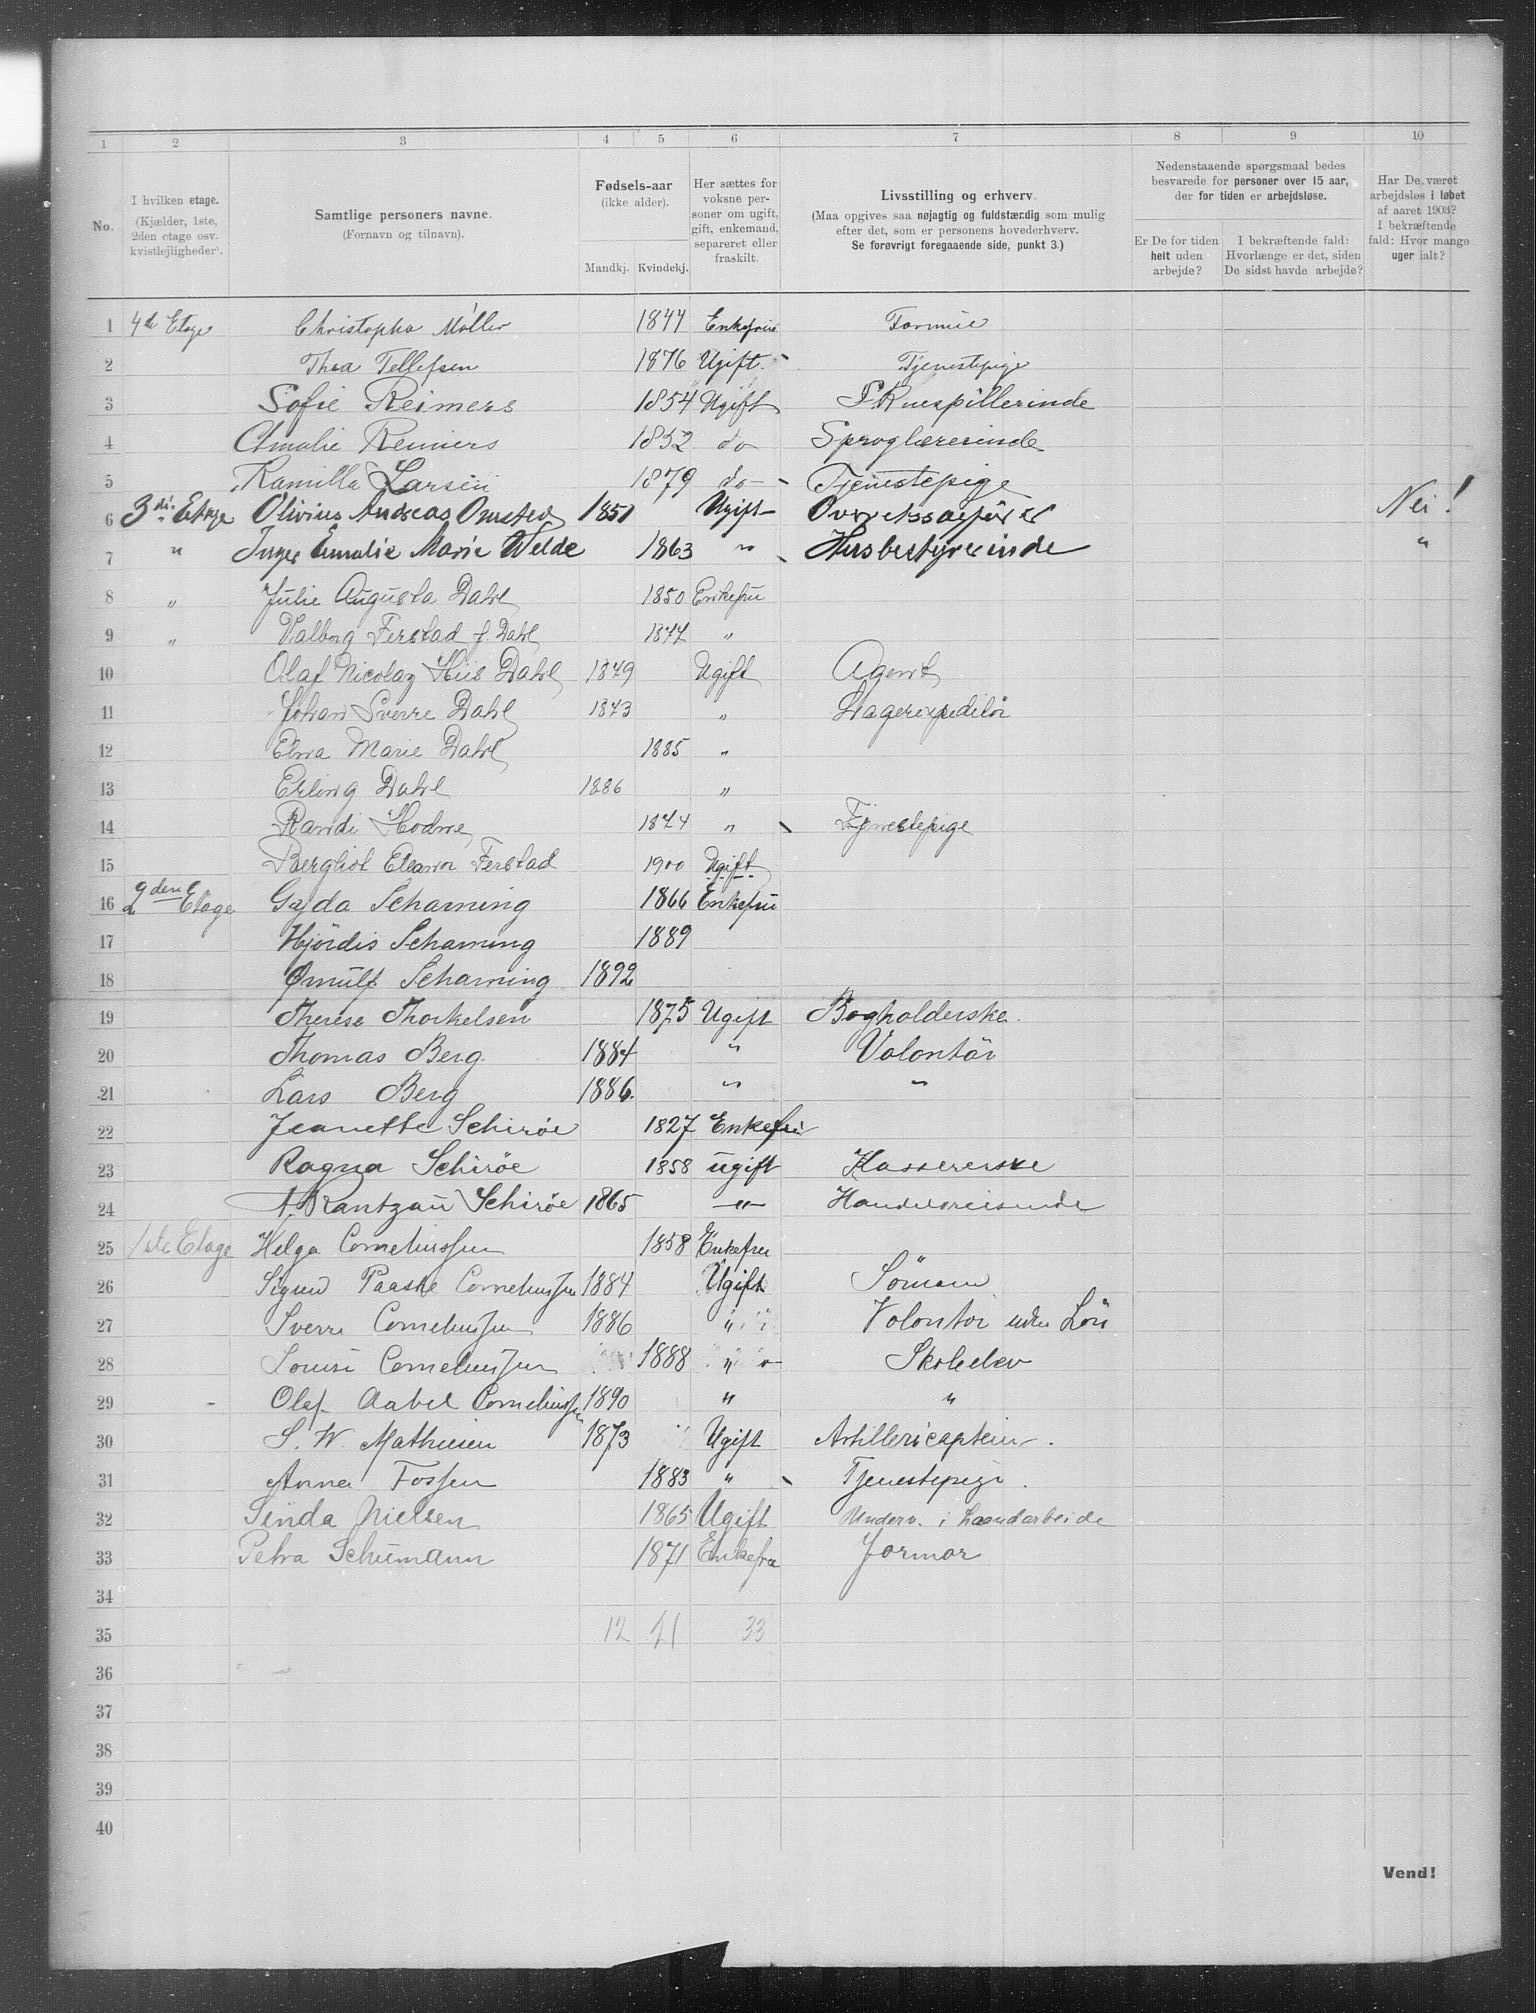 1 2 3 4 5 6 7 8 9 10
No.
I hvilken etage.
(Kjælder, 1ste,
2den etage osv.
kvistlejligheder).
Samtlige personers navne.
(Fornavn og tilnavn).
Fødsels-aar
(ikke alder).
Mandkj. Kvindekj.
Her sættes for
voksne per-
soner om ugift,
gift, enkemand,
separeret eller
fraskilt.
Livsstilling og erhverv.
(Maa opgives saa nøjagtig og fuldstændig som mulig
efter det, som er personens hovederhverv.
Se forøvrigt foregaaende side, punkt 3.)
Nedenstaaende spørgsmaal bedes
besvarede for personer over 15 aar,
der for tiden er arbejdsløse.
Er De for tiden
helt uden
arbejde?
I bekræftende fald:
Hvorlænge er det, siden
De sidst havde arbejde?
Har De været
arbejdsløs i løbet
af aaret 1903?
I bekræftende
fald: Hvor mange
uger ialt?
1 4de Etage Christopha Møller 1844 Enkefrue Formue
2 Thea Tellefsen 1876 Ugift Tjenestepige
3 Sofie Reimers 1854 Ugift Skuespillerinde
4 Amalie Reimers 1852 do Sproglærerinde
5 Kamilla Larsen 1879 do Tjenestepige
6 3die Etage Olivius Andreas Omsted 1851 Ugift Overretssagfører Nei!
7 " Inger Emalie Marie Welde 1863 " Husbestyrerinde "
8 " Julie Augusta Dahl 1850 Enkefru
9 " Valborg Ferstad f. Dahl 1877 "
10 Olaf Nicolay Hiis Dahl 1879 Ugift Agent
11 Johan Sverre Dahl 1873 " Lagerexpeditør
12 Elna Marie Dahl 1885 "
13 Erling Dahl 1886 "
14 Randi Hodne 1874 " Tjenestepige
15 Bergliot Eleanor Ferstad 1900 Ugift
16 2den Etage Gyda Scharning 1866 Enkefru
17 Hjördis Scharning 1889
18 Ørnulf Scharning 1892
19 Therese Thorkelsen 1875 Ugift Bogholderske
20 Thomas Berg 1884 " Volontör
21 Lars Berg 1886. " "
22 Jeanette Schirøe 1827 Enkefru
23 Ragna Schirøe 1858 ugift Kassererske
24 A. Rantzau Schirøe 1865 " Handelsreisende
25 1ste Etage Helga Corneliussen 1858 Enkefru
26 Sigurd Paaske Corneliussen 1884 Ugift Sömand
27 Sverre Corneliussen 1886 " Volontør uden Løn
28 Louise Corneliussen 1888 " Skoleelev
29 Olaf Aabel Corneliussen 1890 " "
30 S. W. Mathiesen 1873 Ugift Artillericaptein.
31 Anna Fossen 1883 " Tjenestepige.
32 Linda Nielsen 1865 Ugift Underv. i Haandarbeide
33 Petra Schumann 1871 Enkefru Formue
34
35 12 21 33
36
37
38
39
40
Vend!